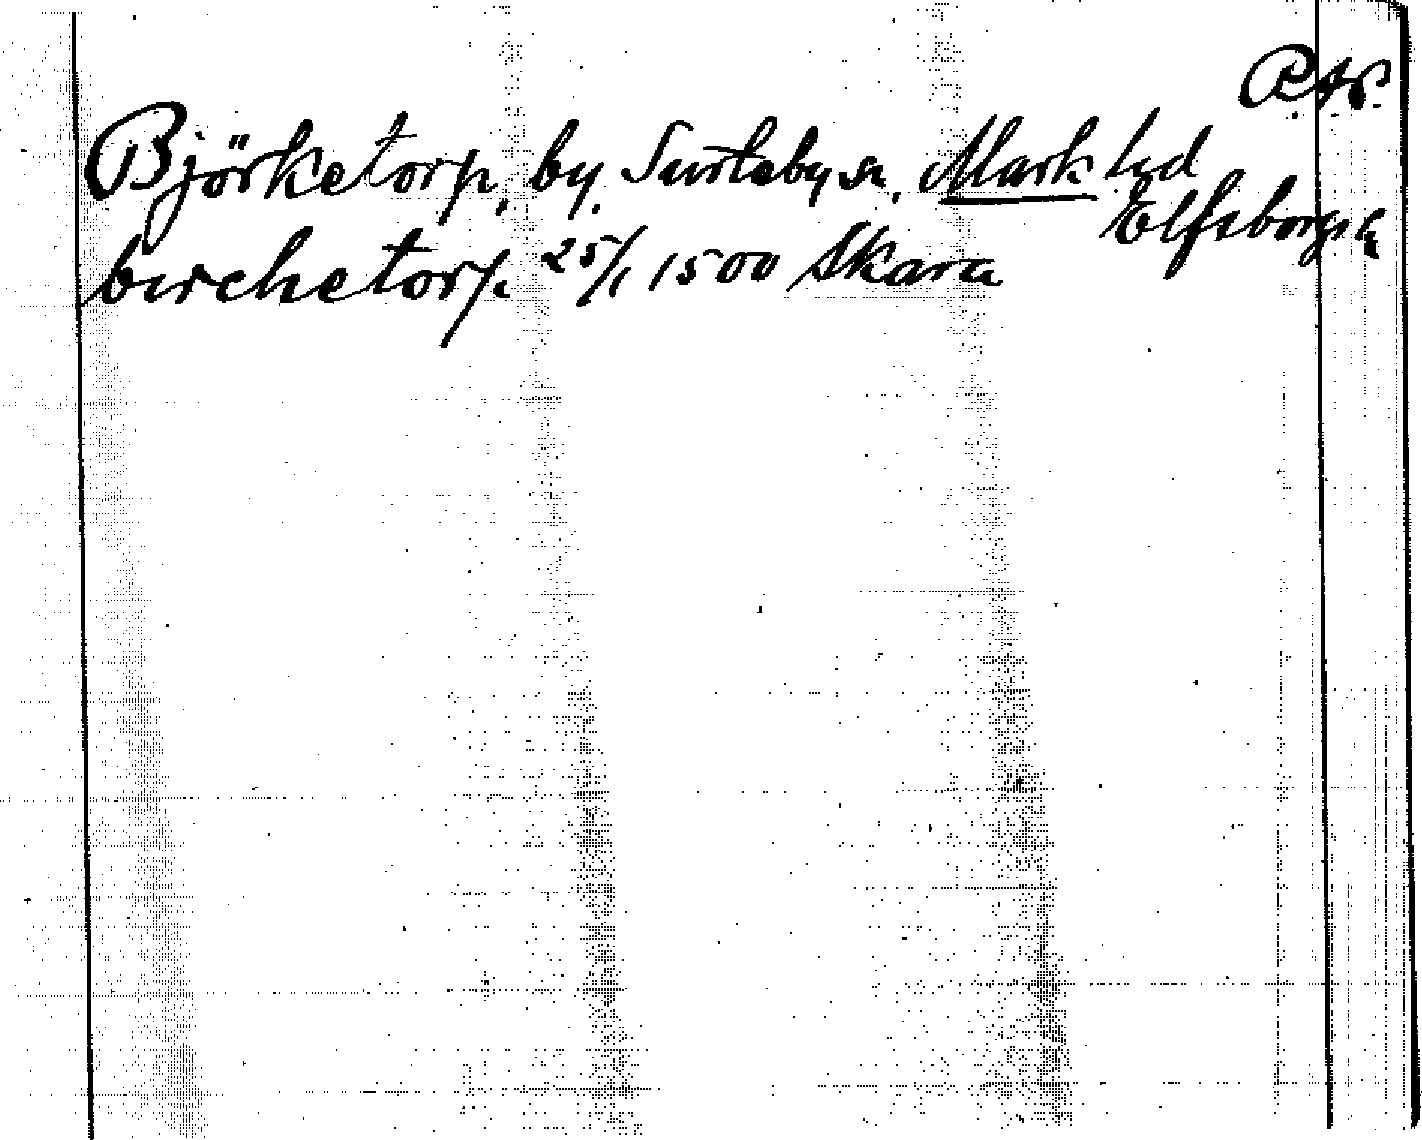 Björketorp, by, Surteby sn, Mark hd
Elfsborgs
birchetorp. 25/1 1500 Skara